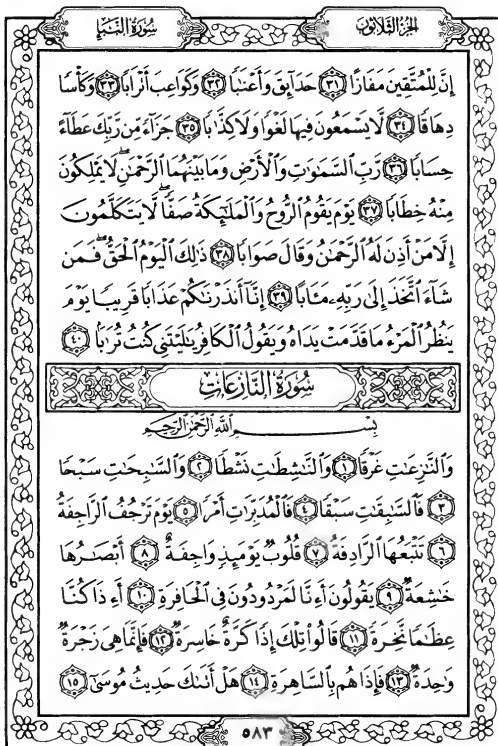 الجزء الثلاثون
سورة النبإ
إِنَّ لِلْمُتَّقِينَ مَفَازًا ٣١ حَدَآئِقَ وَأَعْنَـٰبًا ٣٢ وَكَوَاعِبَ أَتْرَابًا ٣٣ وَكَأْسًا
دِهَاقًا ٣٤ لَّا يَسْمَعُونَ فِيهَا لَغْوًا وَلَا كِذَّٰبًا ٣٥ جَزَآءً مِّن رَّبِّكَ عَطَآءً
حِسَابًا ٣٦ رَّبِّ ٱلسَّمَـٰوَٰتِ وَٱلْأَرْضِ وَمَا بَيْنَهُمَا ٱلرَّحْمَـٰنِ ۖ لَا يَمْلِكُونَ
مِنْهُ خِطَابًا ٣٧ يَوْمَ يَقُومُ ٱلرُّوحُ وَٱلْمَلَـٰٓئِكَةُ صَفًّا ۖ لَّا يَتَكَلَّمُونَ
إِلَّا مَنْ أَذِنَ لَهُ ٱلرَّحْمَـٰنُ وَقَالَ صَوَابًا ٣٨ ذَٰلِكَ ٱلْيَوْمُ ٱلْحَقُّ ۖ فَمَن
شَآءَ ٱتَّخَذَ إِلَىٰ رَبِّهِۦ مَـَٔابًا ٣٩ إِنَّآ أَنذَرْنَـٰكُمْ عَذَابًا قَرِيبًا يَوْمَ
يَنظُرُ ٱلْمَرْءُ مَا قَدَّمَتْ يَدَاهُ وَيَقُولُ ٱلْكَافِرُ يَـٰلَيْتَنِى كُنتُ تُرَٰبًۢا ٤٠
سورة النازعات
بِسْمِ ٱللَّهِ ٱلرَّحْمَـٰنِ ٱلرَّحِيمِ
وَٱلنَّـٰزِعَـٰتِ غَرْقًا ١ وَٱلنَّـٰشِطَـٰتِ نَشْطًا ٢ وَٱلسَّـٰبِحَـٰتِ سَبْحًا
٣ فَٱلسَّـٰبِقَـٰتِ سَبْقًا ٤ فَٱلْمُدَبِّرَٰتِ أَمْرًا ٥ يَوْمَ تَرْجُفُ ٱلرَّاجِفَةُ
٦ تَتْبَعُهَا ٱلرَّادِفَةُ ٧ قُلُوبٌ يَوْمَئِذٍ وَاجِفَةٌ ٨ أَبْصَـٰرُهَا
خَـٰشِعَةٌ ٩ يَقُولُونَ أَءِنَّا لَمَرْدُودُونَ فِى ٱلْحَافِرَةِ ١٠ أَءِذَا كُنَّا
عِظَـٰمًا نَّخِرَةً ١١ قَالُوا۟ تِلْكَ إِذًا كَرَّةٌ خَاسِرَةٌ ١٢ فَإِنَّمَا هِىَ زَجْرَةٌ
وَٰحِدَةٌ ١٣ فَإِذَا هُم بِٱلسَّاهِرَةِ ١٤ هَلْ أَتَىٰكَ حَدِيثُ مُوسَىٰٓ ١٥
٥٨٣